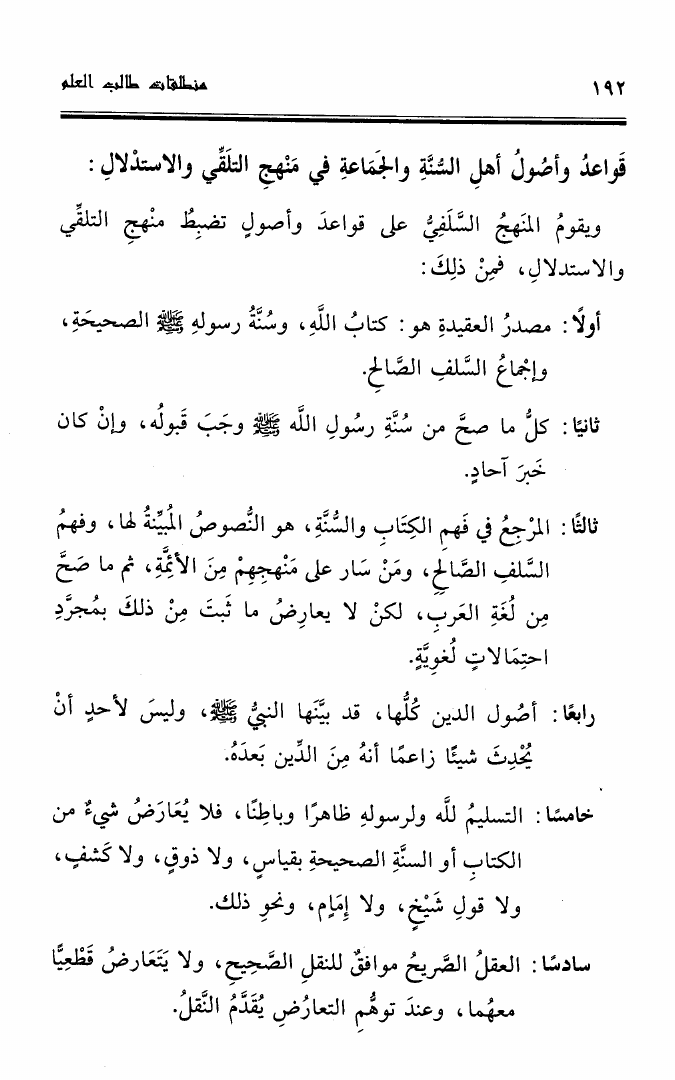 ١٩٢ منطلقات طالب العلم
قَواعدُ وأصُولُ أهلِ السُّنَّةِ والجَمَاعةِ في مَنْهجِ التلَقِّي والاستدْلالِ :
ويقومُ المنَهجُ السَّلَفِيُّ على قواعدَ وأصولٍ تضبِطُ منْهجِ التلقِّي
والاستدلالِ، فمِنْ ذلِكَ:
أولًا: مصدرُ العقيدةِ هو: كتابُ اللَّهِ، وسُنَّةُ رسولهِ ﷺ الصحيحَةِ،
وإجْماعُ السَّلفِ الصَّالحِ.
ثانيًا: كلُّ ما صحَّ من سُنَّةِ رسُولِ اللَّه ﷺ وجَبَ قَبولُه، وإنْ كان
خَبرَ آحادٍ.
ثالثًا: المرْجِعُ في فَهمِ الكِتَابِ والسُّنَّةِ، هو النُّصوصُ المُبيِّنةُ لها، وفهمُ
السَّلفِ الصَّالحِ، ومَنْ سَار على مَنْهجِهِمْ مِنَ الأئِمَّةِ، ثم ما صَحَّ
مِن لُغَةِ العَربِ، لكنْ لا يعارِضُ ما ثَبتَ مِنْ ذلكَ بمُجرَّدِ
احتِمَالاتٍ لُغويَّةٍ.
رابعًا: أصُول الدين كُلُّها، قد بيَّنَها النبيُّ ﷺ، وليسَ لأحدٍ أنْ
يُحْدِثَ شيئًا زاعمًا أنهُ مِنَ الدِّين بَعدَهُ.
خامسًا: التسليمُ للَّه ولرسولهِ ظاهرًا وباطِنًا، فلا يُعَارَضُ شيءٌ من
الكتابِ أو السنَّةِ الصحيحةِ بقياسٍ، ولا ذوقٍ، ولا كَشفٍ،
ولا قولِ شَيْخٍ، ولا إمَامٍ، ونحوِ ذلك.
سادسًا: العقلُ الصَّريحُ موافقٌ للنقلِ الصَّحِيحِ، ولا يَتَعَارضُ قَطْعِيًّا
معهُما، وعندَ توهُّمِ التعارُضِ يُقَدَّمُ النَّقلُ.